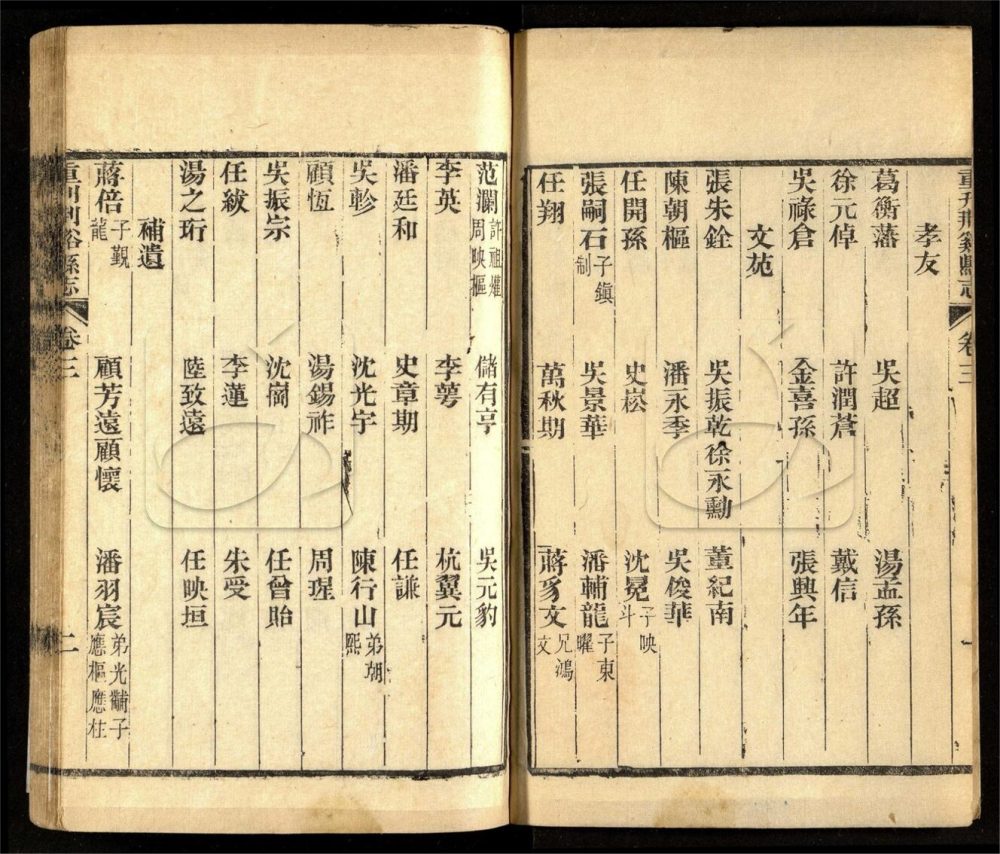 重刊荊谿縣志 卷三 一
孝友
葛衡藩 吳超 湯孟孫
徐元倬 許潤蒼 戴信
吳祿倉 金喜孫 張興年
文苑
張朱銓 吳振乾 徐永勳 董紀南
陳朝樞 潘永季 吳俊華
任開孫 史崧 沈冕 子映斗
張嗣石 子鎮制 吳景華 潘輔龍 子東曜
任翔 萬秋期 蔣豸文 兄鴻文
范瀾 許祖 周映樞 儲有亨 吳元豹
李英 李萼 杭翼元
潘廷和 史章期 任謙
吳軫 沈光宇 陳行山 弟朝熙
顧恆 湯錫祚 周瑆
吳振宗 沈崗 任曾貽
任紱 李蓮 朱受
湯之珩 陸致遠 任映垣
補遺
蔣倍 子觀龍 顧芳遠 顧懷 潘羽宸 弟光黼子應樞應柱
重刊荊谿縣志 卷三 二